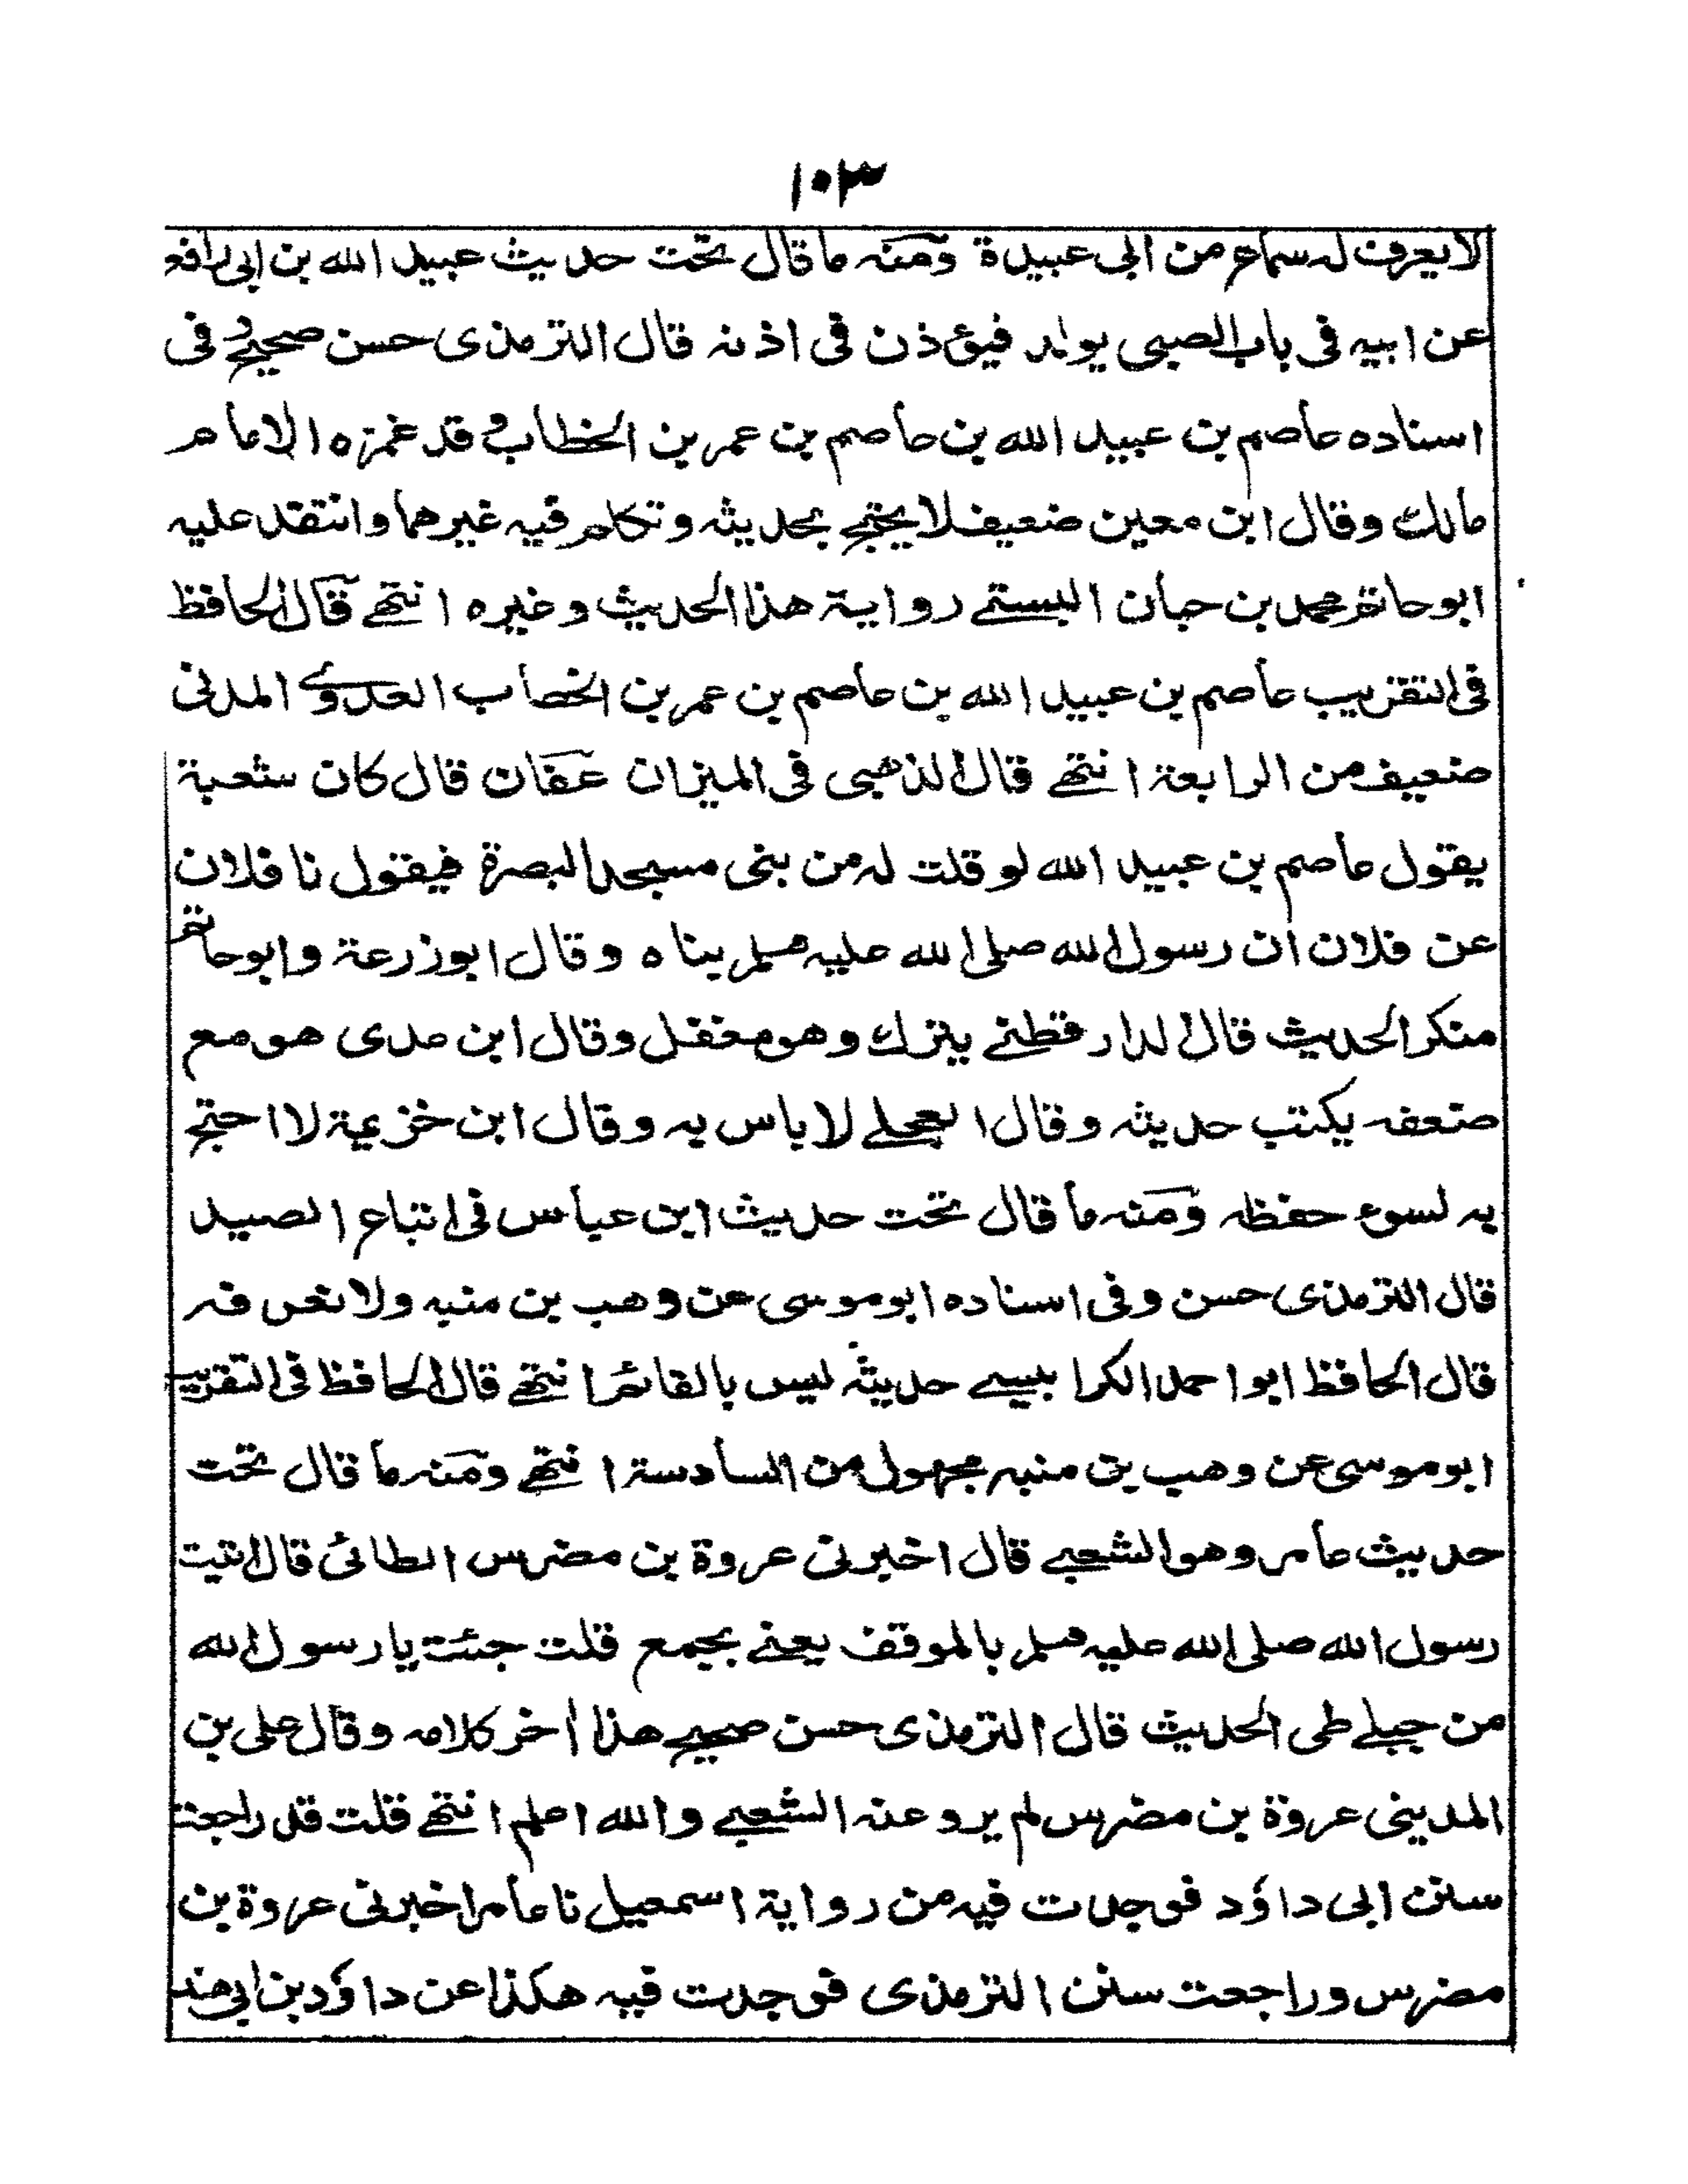 ١٠٣
لا يعرف له سماع من ابى عبيدة ومنه ما قال تحت حديث عبيد الله بن ابى رافع
عن ابيه فى باب الصبى يولد فيؤذن فى اذنه قال الترمذى حسن صحيح وفى
اسناده عاصم بن عبيد الله بن عاصم بن عمر بن الخطاب وقد غمزه الامام
مالك وقال ابن معين ضعيف لا يحتج بحديثه وتكلم فيه غيرهما وانتقد عليه
ابو حاتم محمد بن حبان البستے رواية هذا الحديث وغيره انتهے قال الحافظ
فى التقريب عاصم بن عبيد الله بن عاصم بن عمر بن الخطاب العدوے المدنى
ضعيف من الرابعة انتهے قال الذهبى فى الميزان عفان قال كان شعبة
يقول عاصم بن عبيد الله لو قلت له من بنى مسجد البصرة فيقول نا فلان
عن فلان ان رسول الله صلى الله عليه وسلم بناه وقال ابو زرعة وابو حاتم
منكر الحديث قال الدارقطنے يترك وهو مغفل وقال ابن عدى هو مع
ضعفه يكتب حديثه وقال العجلے لا باس به وقال ابن خزيمة لا احتج
به لسوء حفظه ومنه ما قال تحت حديث ابن عباس فى اتباع الصيد
قال الترمذى حسن وفى اسناده ابو موسى عن وهب بن منبه ولا نعرفه
قال الحافظ ابو احمد الكرابيسے حديثه ليس بالقائم انتهے قال الحافظ فى التقريب
ابو موسى عن وهب بن منبه مجهول من السادسة انتهے ومنه ما قال تحت
حديث عامر وهو الشعبے قال اخبرنى عروة بن مضرس الطائى قال اتيت
رسول الله صلى الله عليه وسلم بالموقف يعنے بجمع قلت جئت يا رسول الله
من جبلے طى الحديث قال الترمذى حسن صحيح هذا اٰخر كلامه وقال على بن
المدينى عروة بن مضرس لم يرو عنه الشعبے والله اعلم انتهے قلت قد راجعت
سنن ابى داؤد فوجدت فيه من رواية اسمعيل نا عامر اخبرنى عروة بن
مضرس وراجعت سنن الترمذى فوجدت فيه هكذا عن داؤد بن ابى هند